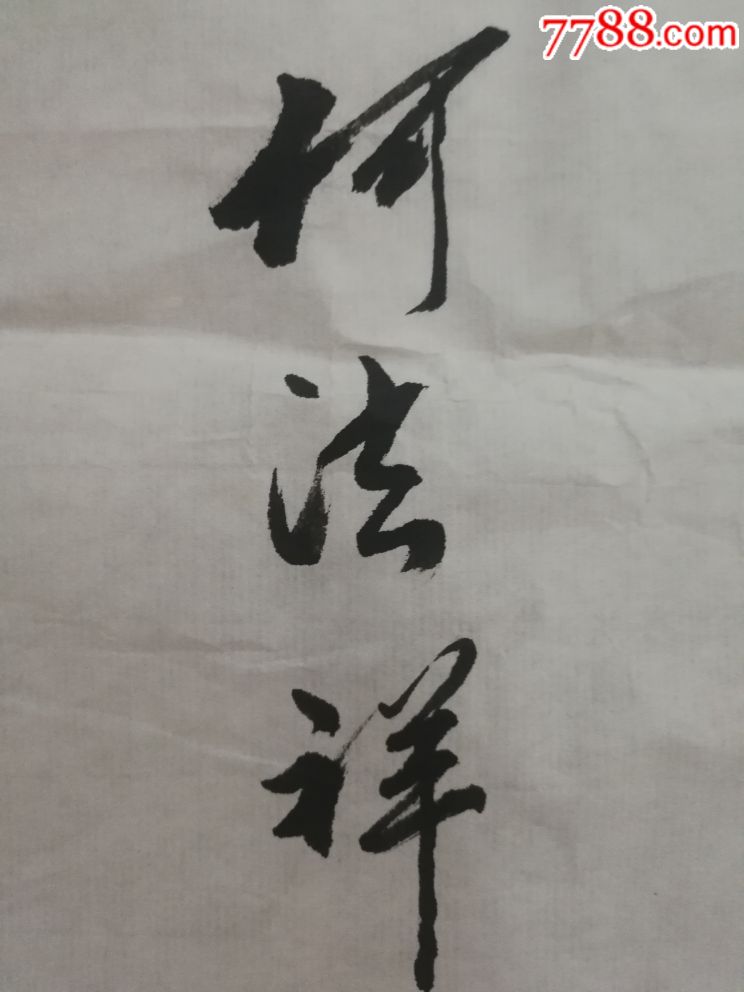 7788.com
何法祥